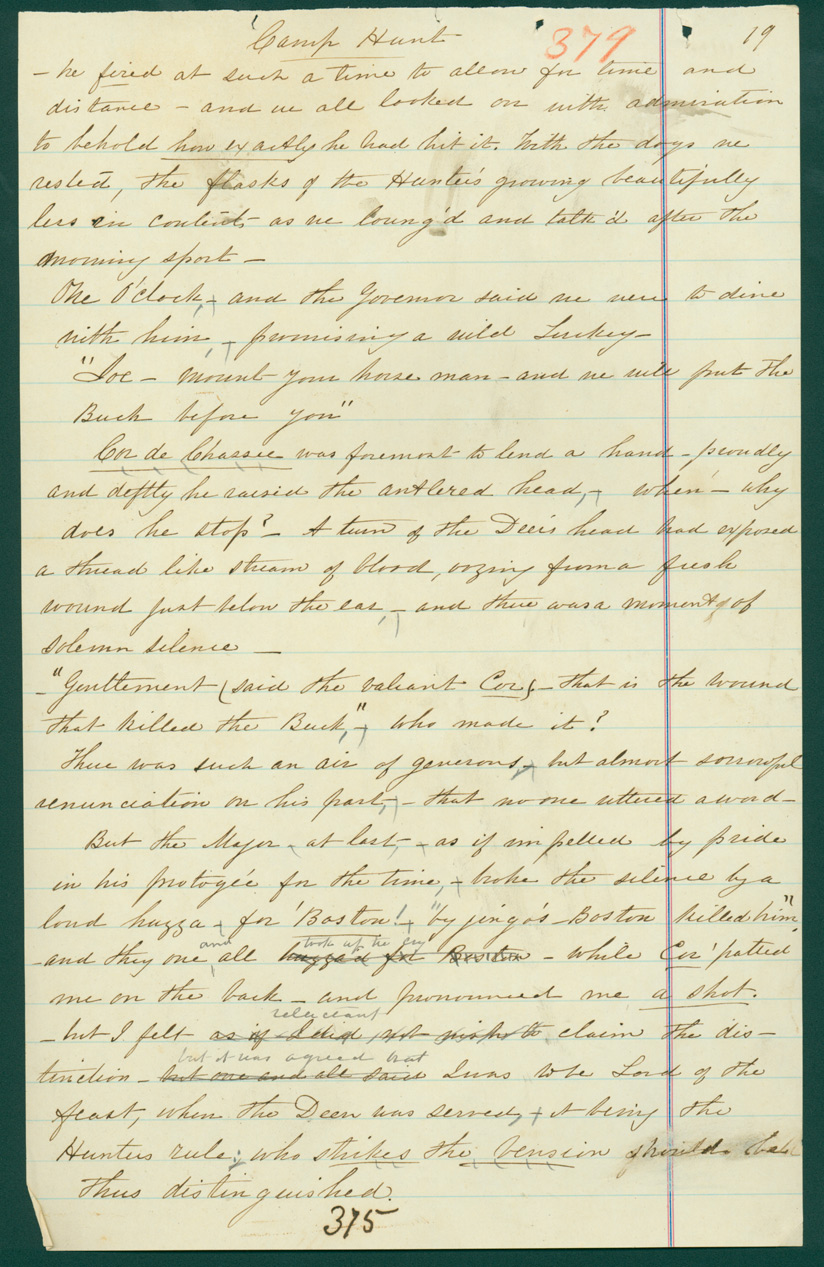 Camp Hunt 379 19
- he fired at such a time to allow for time and
distance - and we all looked on with admiration
to behold how exactly he had hit it. With the dogs we
rested, the flasks of the Hunter's growing beautifully
less in contents as we loung'd and talk'd after the
morning sport -
One O'Clock, - and the Governor said we were to dine
with him, - promising a wild Turkey -
"Joe - mount your horse man - and we will put the
Buck before you"
Cor de Chassee was foremost to lend a hand - proudly
and deftly he raised the antlered head, - when - why
does he stop? - A turn of the Deer's head had exposed
a thread like stream of blood, oozing from a fresh
wound just below the ear, - and there was a moment of
solemn silence -
- "Gentlement (said the valiant Cor) - that is the wound
that killed the Buck," - who made it?
There was such an air of generous, - but almost sorrowful
renunciation on his part, - that no one uttered a word -
But the Major - at last, - as if impelled by pride
in his protogée for the time, - broke the silence by a
loud huzza - for 'Boston'! - "by jingo's - Boston killed him",
and took up the cry
- and they one all huzza'd for Boston - while Cor' patted
me on the back - and pronounced me a shot.
reluctant
- but I felt as if I did not wish to claim the dis-
but it was agreed that
tinction - but one and all said I was to be Lord of the
feast, when the Deer was served, - it being the
Hunters rule: who strikes the Venison should be
thus distinguished.
375